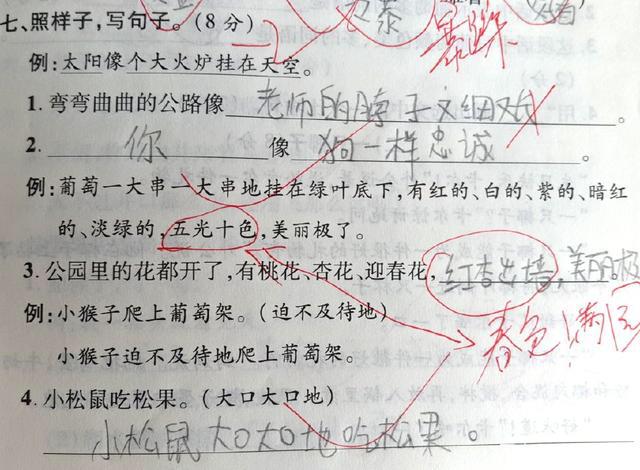 七、照样子，写句子。(8分) -2 暴躁
例:太阳像个大火炉挂在天空。
1. 弯弯曲曲的公路像老师的脖子又细又 。
2. 你像狗一样忠诚。
例:葡萄一大串一大串地挂在绿叶底下,有红的、白的、紫的、暗红
的、淡绿的,五光十色,美丽极了。
3. 公园里的花都开了,有桃花、杏花、迎春花,红杏出墙,美丽极
春色满园
例:小猴子爬上葡萄架。(迫不及待地)
小猴子迫不及待地爬上葡萄架。
4. 小松鼠吃松果。(大口大口地)
小松鼠大口大口地吃松果。